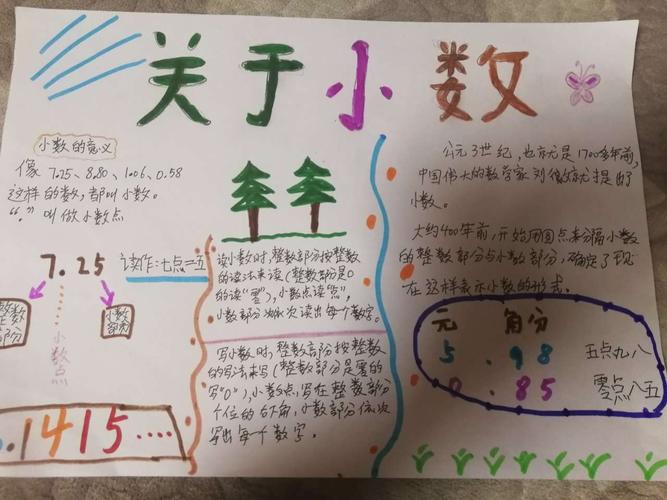 关于小数
小数的意义
像 7.25、8.80、1.06、0.58
这样的数，都叫小数。
“.”叫做小数点
7.25 读作：七点二五
整数
部分
小数
部分
小数点
.1415····
读小数时，整数部分按整数
的读法来读（整数部分是0
的读“零”），小数点读“点”，
小数部分依次读出每个数字。
写小数时，整数部分按整数
的写法来写（整数部分是零的
写“0”），小数点，写在整数部分
个位的右下角，小数部分依次
写出每个数字。
公元3世纪，也就是1700多年前，
中国伟大的数学家刘徽就提出了
小数。
大约400年前，开始用圆点来分隔小数
的整数部分与小数部分，确定了现
在这样表示小数的形式。
元 角分
5.98 五点九八
0.85 零点八五